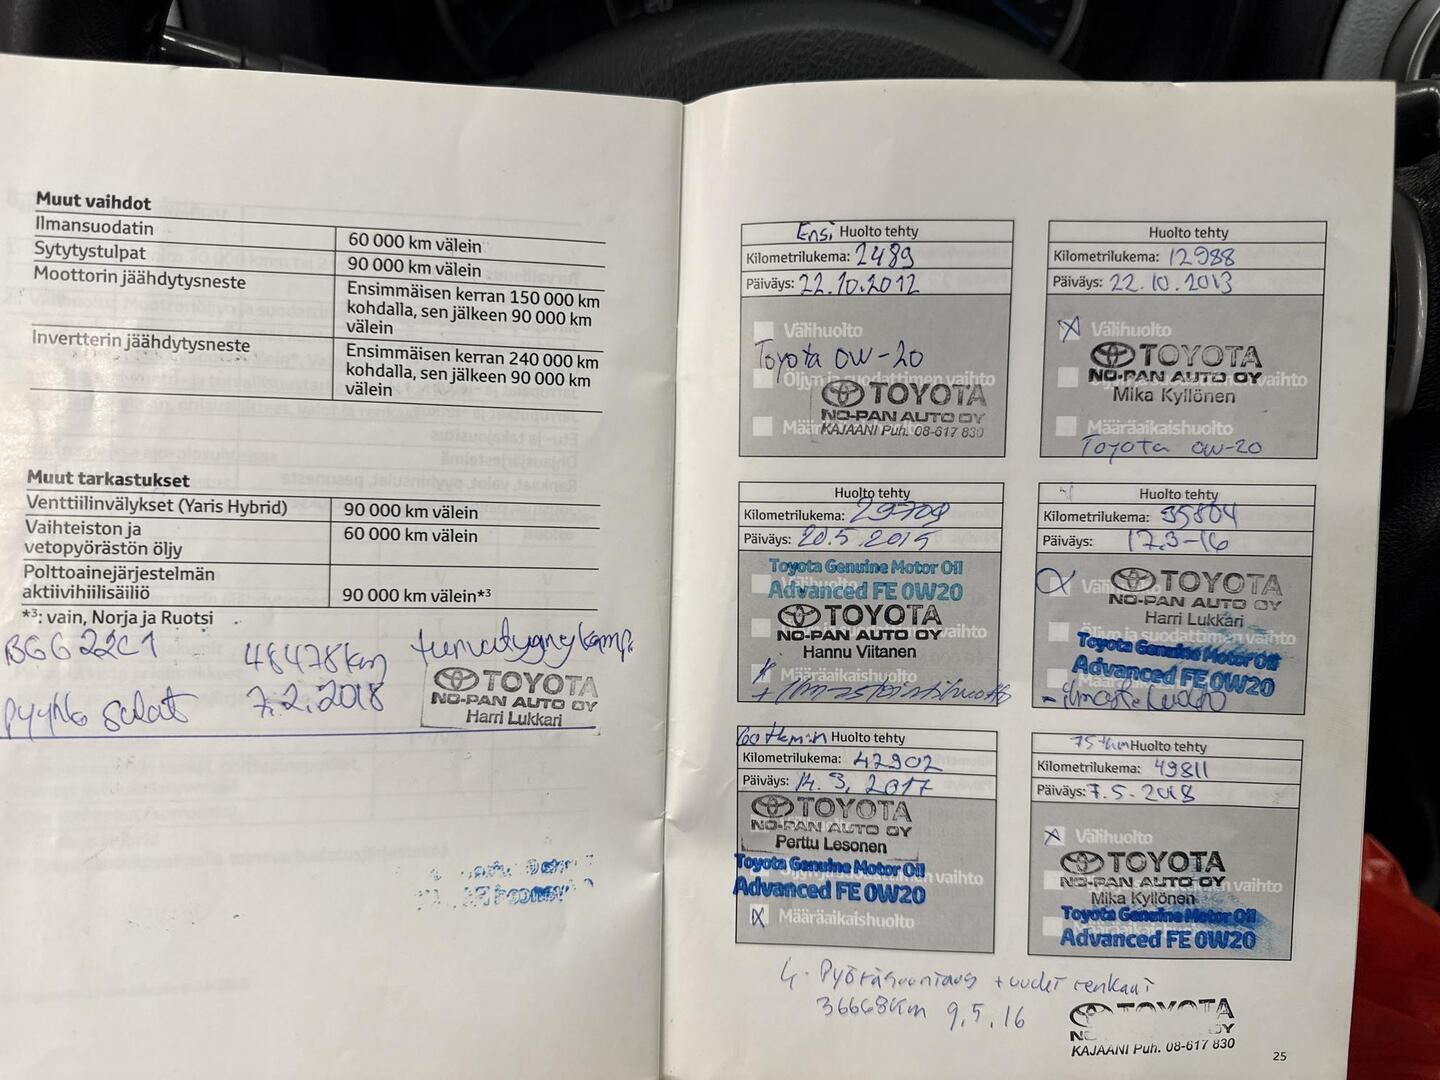 Muut vaihdot
Ilmansuodatin 60 000 km välein
Sytytystulpat 90 000 km välein
Moottorin jäähdytysneste Ensimmäisen kerran 150 000 km
kohdalla, sen jälkeen 90 000 km
välein
Invertterin jäähdytysneste Ensimmäisen kerran 240 000 km
kohdalla, sen jälkeen 90 000 km
välein
Muut tarkastukset
Venttiilinvälykset (Yaris Hybrid) 90 000 km välein
Vaihteiston ja 60 000 km välein
vetopyörästön öljy
Polttoainejärjestelmän
aktiivihiilisäiliö 90 000 km välein*3
*3: vain, Norja ja Ruotsi
48478km
7.2.2018
TOYOTA
NO-PAN AUTO OY
Harri Lukkari
Ensi Huolto tehty
Kilometrilukema: 2489
Päiväys: 22.10.2012
Välihuolto
Toyota 0W-20
Öljyn ja suodattimen vaihto
TOYOTA
NO-PAN AUTO OY
KAJAANI Puh. 08-617 830
Määräaikaishuolto
Huolto tehty
Kilometrilukema: 12988
Päiväys: 22.10.2013
Välihuolto
TOYOTA
NO-PAN AUTO OY
Mika Kyllönen
Määräaikaishuolto
Toyota 0W-20
Huolto tehty
Kilometrilukema: 29709
Päiväys: 20.5.2015
Toyota Genuine Motor Oil
Advanced FE 0W20
TOYOTA
NO-PAN AUTO OY
Hannu Viitanen
Huolto tehty
Kilometrilukema: 35804
Päiväys: 17.3-16
TOYOTA
NO-PAN AUTO OY
Harri Lukkari
Toyota Genuine Motor Oil
Advanced FE 0W20
60 tkm:n Huolto tehty
Kilometrilukema: 42902
Päiväys: 14.3.2017
TOYOTA
NO-PAN AUTO OY
Perttu Lesonen
Toyota Genuine Motor Oil
Advanced FE 0W20
Määräaikaishuolto
75 tkm Huolto tehty
Kilometrilukema: 49811
Päiväys: 7.5-2018
Välihuolto
TOYOTA
NO-PAN AUTO OY
Mika Kyllönen
Toyota Genuine Motor Oil
Advanced FE 0W20
4-Pyöräsuuntaus + uudet renkaat
36668km 9.5.16
TOYOTA
KAJAANI Puh. 08-617 830
25